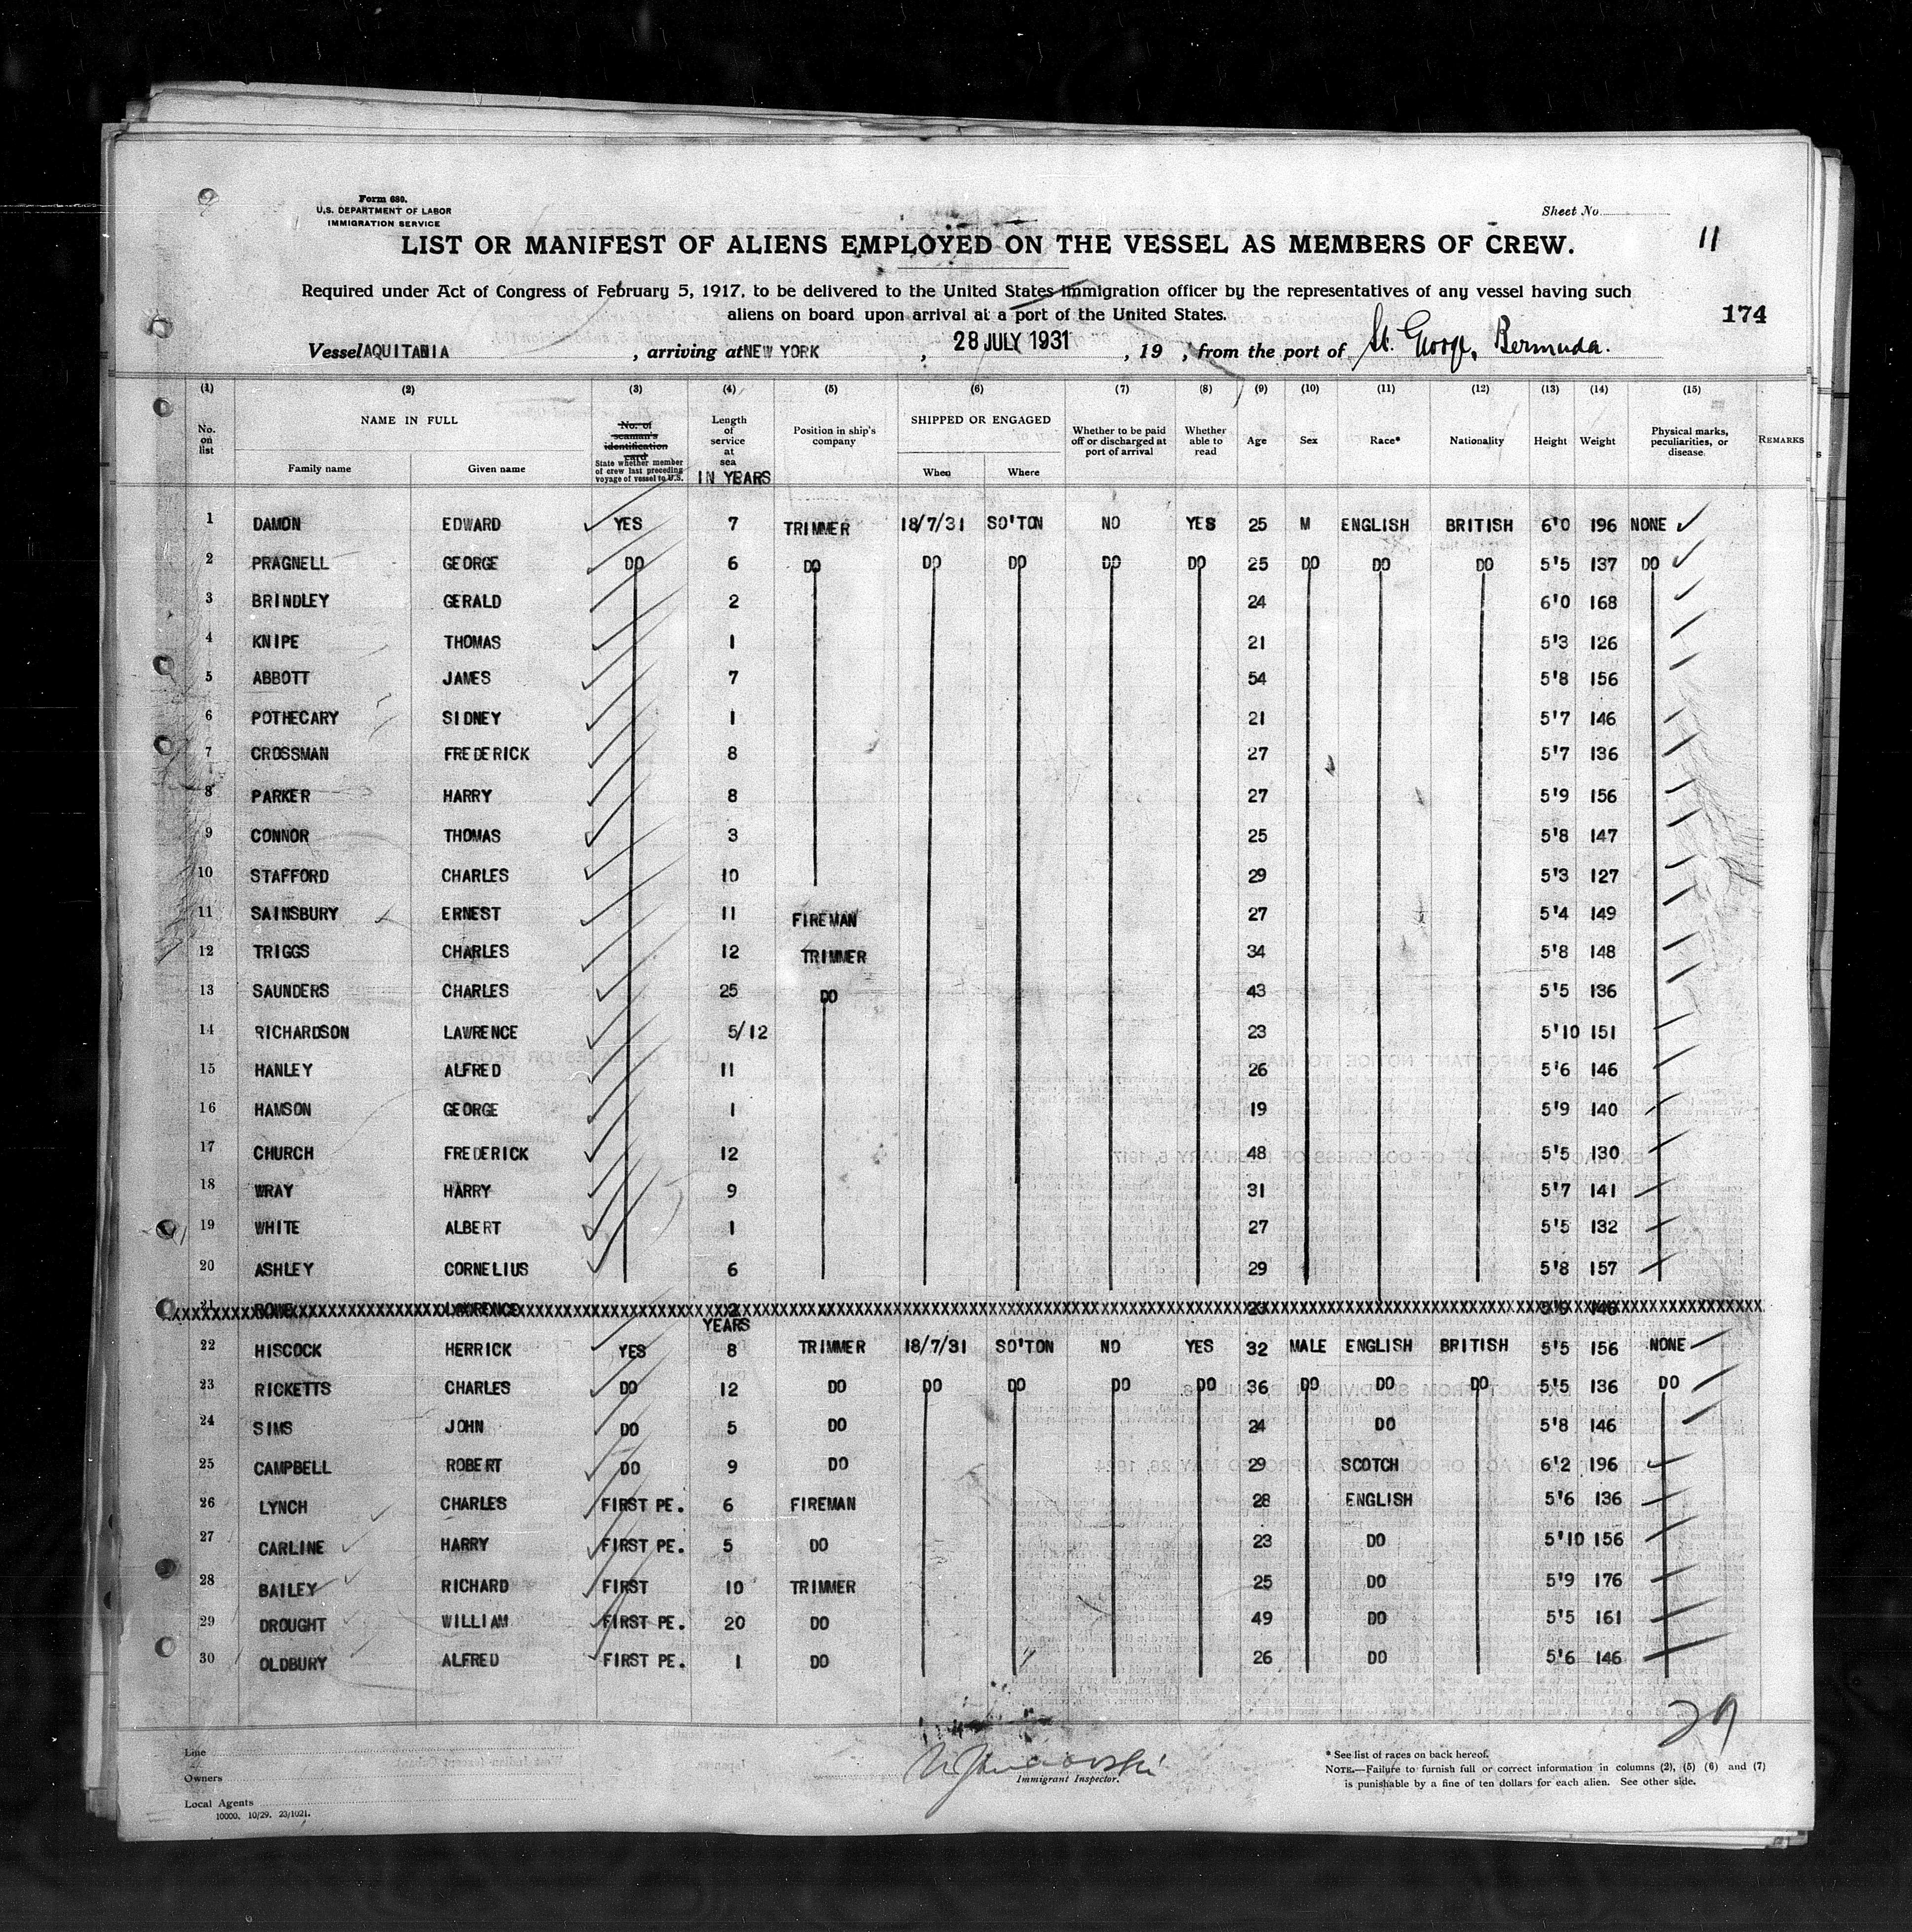 Form 680.
U.S. DEPARTMENT OF LABOR
IMMIGRATION SERVICE
Sheet No.
LIST OR MANIFEST OF ALIENS EMPLOYED ON THE VESSEL AS MEMBERS OF CREW.
11
Required under Act of Congress of February 5, 1917, to be delivered to the United States Immigration officer by the representatives of any vessel having such
aliens on board upon arrival at a port of the United States.
174
Vessel AQUITANIA, arriving at NEW YORK, 28 JULY 1931, 19 , from the port of St. George, Bermuda.
(1) (2) (3) (4) (5) (6) (7) (8) (9) (10) (11) (12) (13) (14) (15)
No. on list NAME IN FULL Family name Given name No. of seaman's identification card State whether member of crew last preceding voyage of vessel to U.S. Length of service at sea IN YEARS Position in ship's company SHIPPED OR ENGAGED When Where Whether to be paid off or discharged at port of arrival Whether able to read Age Sex Race* Nationality Height Weight Physical marks, peculiarities, or disease. REMARKS
1 DAMON EDWARD YES 7 TRIMMER 18/7/31 SO'TON NO YES 25 M ENGLISH BRITISH 6'0 196 NONE
2 PRAGNELL GEORGE DO 6 DO DO DO DO DO 25 DO DO DO 5'5 137 DO
3 BRINDLEY GERALD 2 24 6'0 168
4 KNIPE THOMAS 1 21 5'3 126
5 ABBOTT JAMES 7 54 5'8 156
6 POTHECARY SIDNEY 1 21 5'7 146
7 CROSSMAN FREDERICK 8 27 5'7 136
8 PARKER HARRY 8 27 5'9 156
9 CONNOR THOMAS 3 25 5'8 147
10 STAFFORD CHARLES 10 29 5'3 127
11 SAINSBURY ERNEST 11 FIREMAN 27 5'4 149
12 TRIGGS CHARLES 12 TRIMMER 34 5'8 148
13 SAUNDERS CHARLES 25 DO 43 5'5 136
14 RICHARDSON LAWRENCE 5/12 23 5'10 151
15 HANLEY ALFRED 11 26 5'6 146
16 HAMSON GEORGE 1 19 5'9 140
17 CHURCH FREDERICK 12 48 5'5 130
18 WRAY HARRY 9 31 5'7 141
19 WHITE ALBERT 1 27 5'5 132
20 ASHLEY CORNELIUS 6 29 5'8 157
21 LAWRENCE
YEARS
22 HISCOCK HERRICK YES 8 TRIMMER 18/7/31 SO'TON NO YES 32 MALE ENGLISH BRITISH 5'5 156 NONE
23 RICKETTS CHARLES DO 12 DO DO DO DO DO 36 DO DO DO 5'5 136 DO
24 SIMS JOHN DO 5 DO 24 DO 5'8 146
25 CAMPBELL ROBERT DO 9 DO 29 SCOTCH 6'2 196
26 LYNCH CHARLES FIRST PE. 6 FIREMAN 28 ENGLISH 5'6 136
27 CARLINE HARRY FIRST PE. 5 DO 23 DO 5'10 156
28 BAILEY RICHARD FIRST 10 TRIMMER 25 DO 5'9 176
29 DROUGHT WILLIAM FIRST PE. 20 DO 49 DO 5'5 161
30 OLDBURY ALFRED FIRST PE. 1 DO 26 DO 5'6 146
29
Line
Owners
Local Agents
10000. 10/29. 23/1021.
Immigrant Inspector.
* See list of races on back hereof.
NOTE.—Failure to furnish full or correct information in columns (2), (5) (6) and (7)
is punishable by a fine of ten dollars for each alien. See other side.